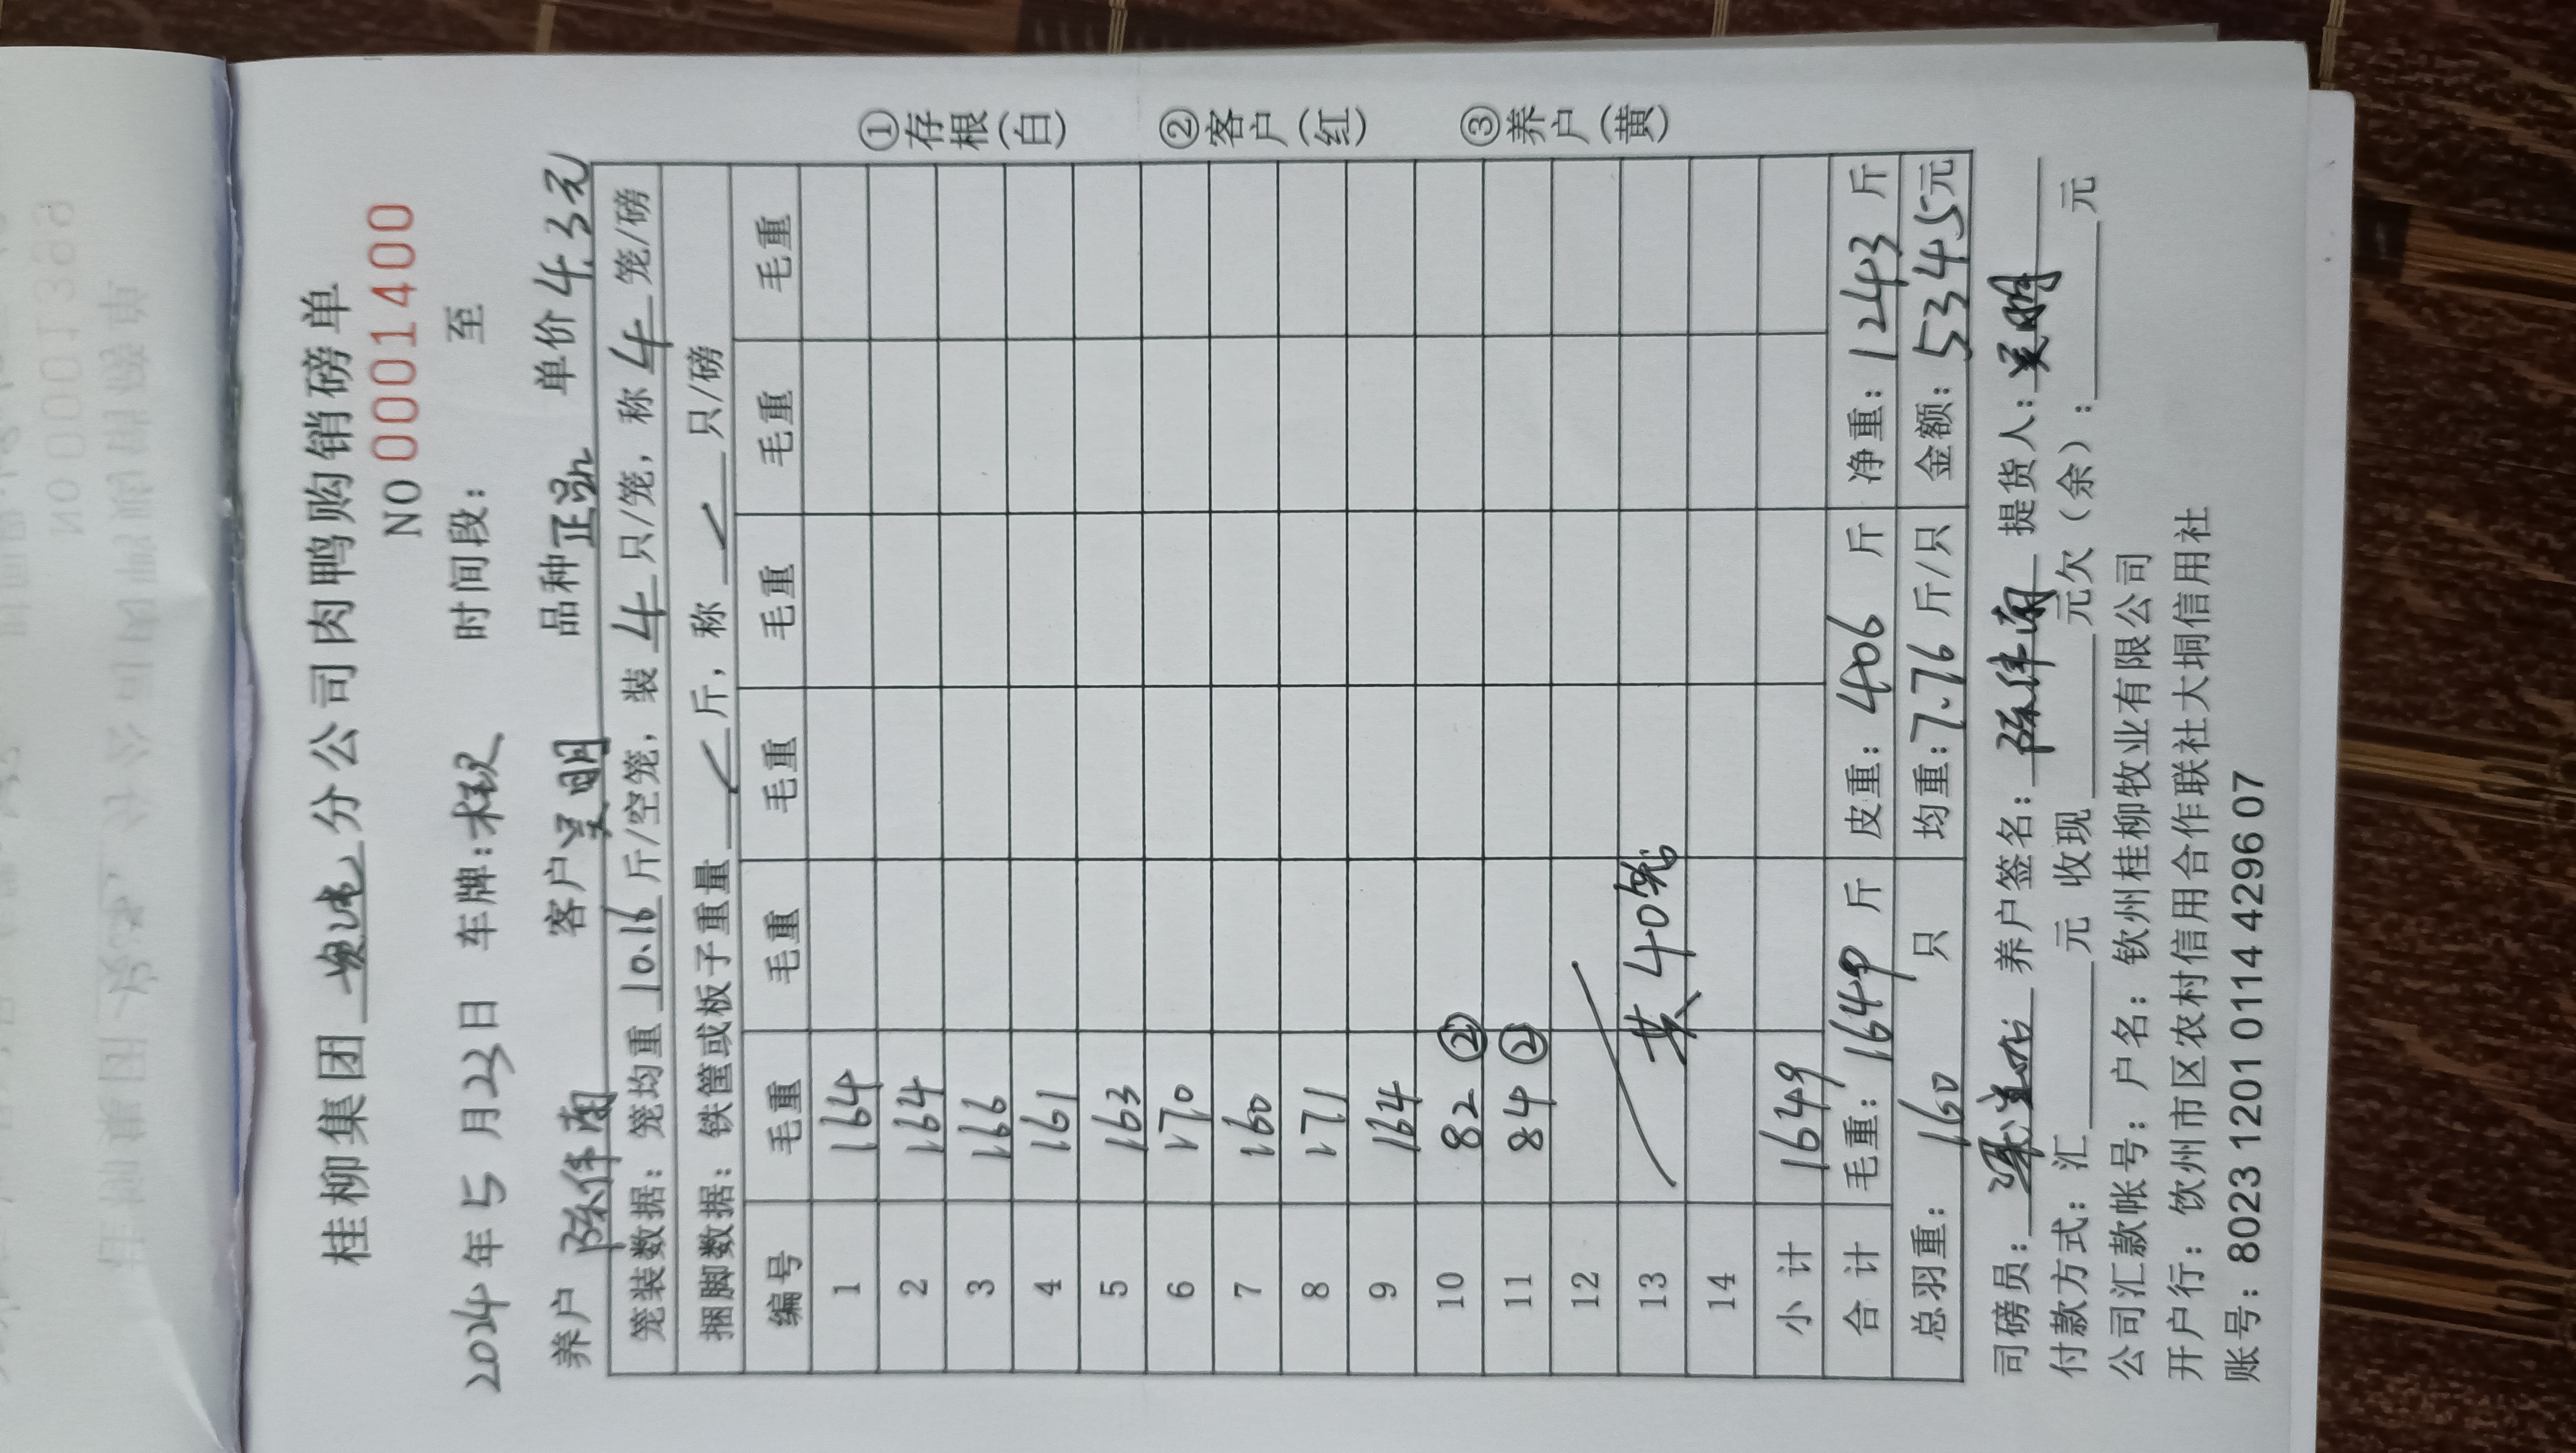 桂柳集团 分公司肉鸭购销磅单
NO 0001400
2024年5月23日 车牌: 时间段: 至
养户 陈伟南 客户 吴明 品种 正品 单价 4.3元
笼装数据: 笼均重 10.16 斤/空笼, 装 4 只/笼, 称 4 笼/磅
捆脚数据: 铁筐或板子重量 / 斤, 称 / 只/磅
编号 毛重 毛重 毛重 毛重 毛重 毛重
1 164
2 164
3 166
4 161
5 163
6 170
7 160
8 171
9 164
10 82 ②
11 84 ②
12
13 共40笼
14
小计 1649
合计 毛重: 1649 斤 皮重: 406 斤 净重: 1243 斤
总羽重: 160 只 均重: 7.76 斤/只 金额: 5345元
①存根(白) ②客户(红) ③养户(黄)
司磅员: 养户签名: 陈伟南 提货人: 吴明
付款方式: 汇 元 收现 元欠(余): 元
公司汇款帐号: 户名: 钦州桂柳牧业有限公司
开户行: 饮州市区农村信用合作联社大垌信用社
账号: 8023 1201 0114 4296 07